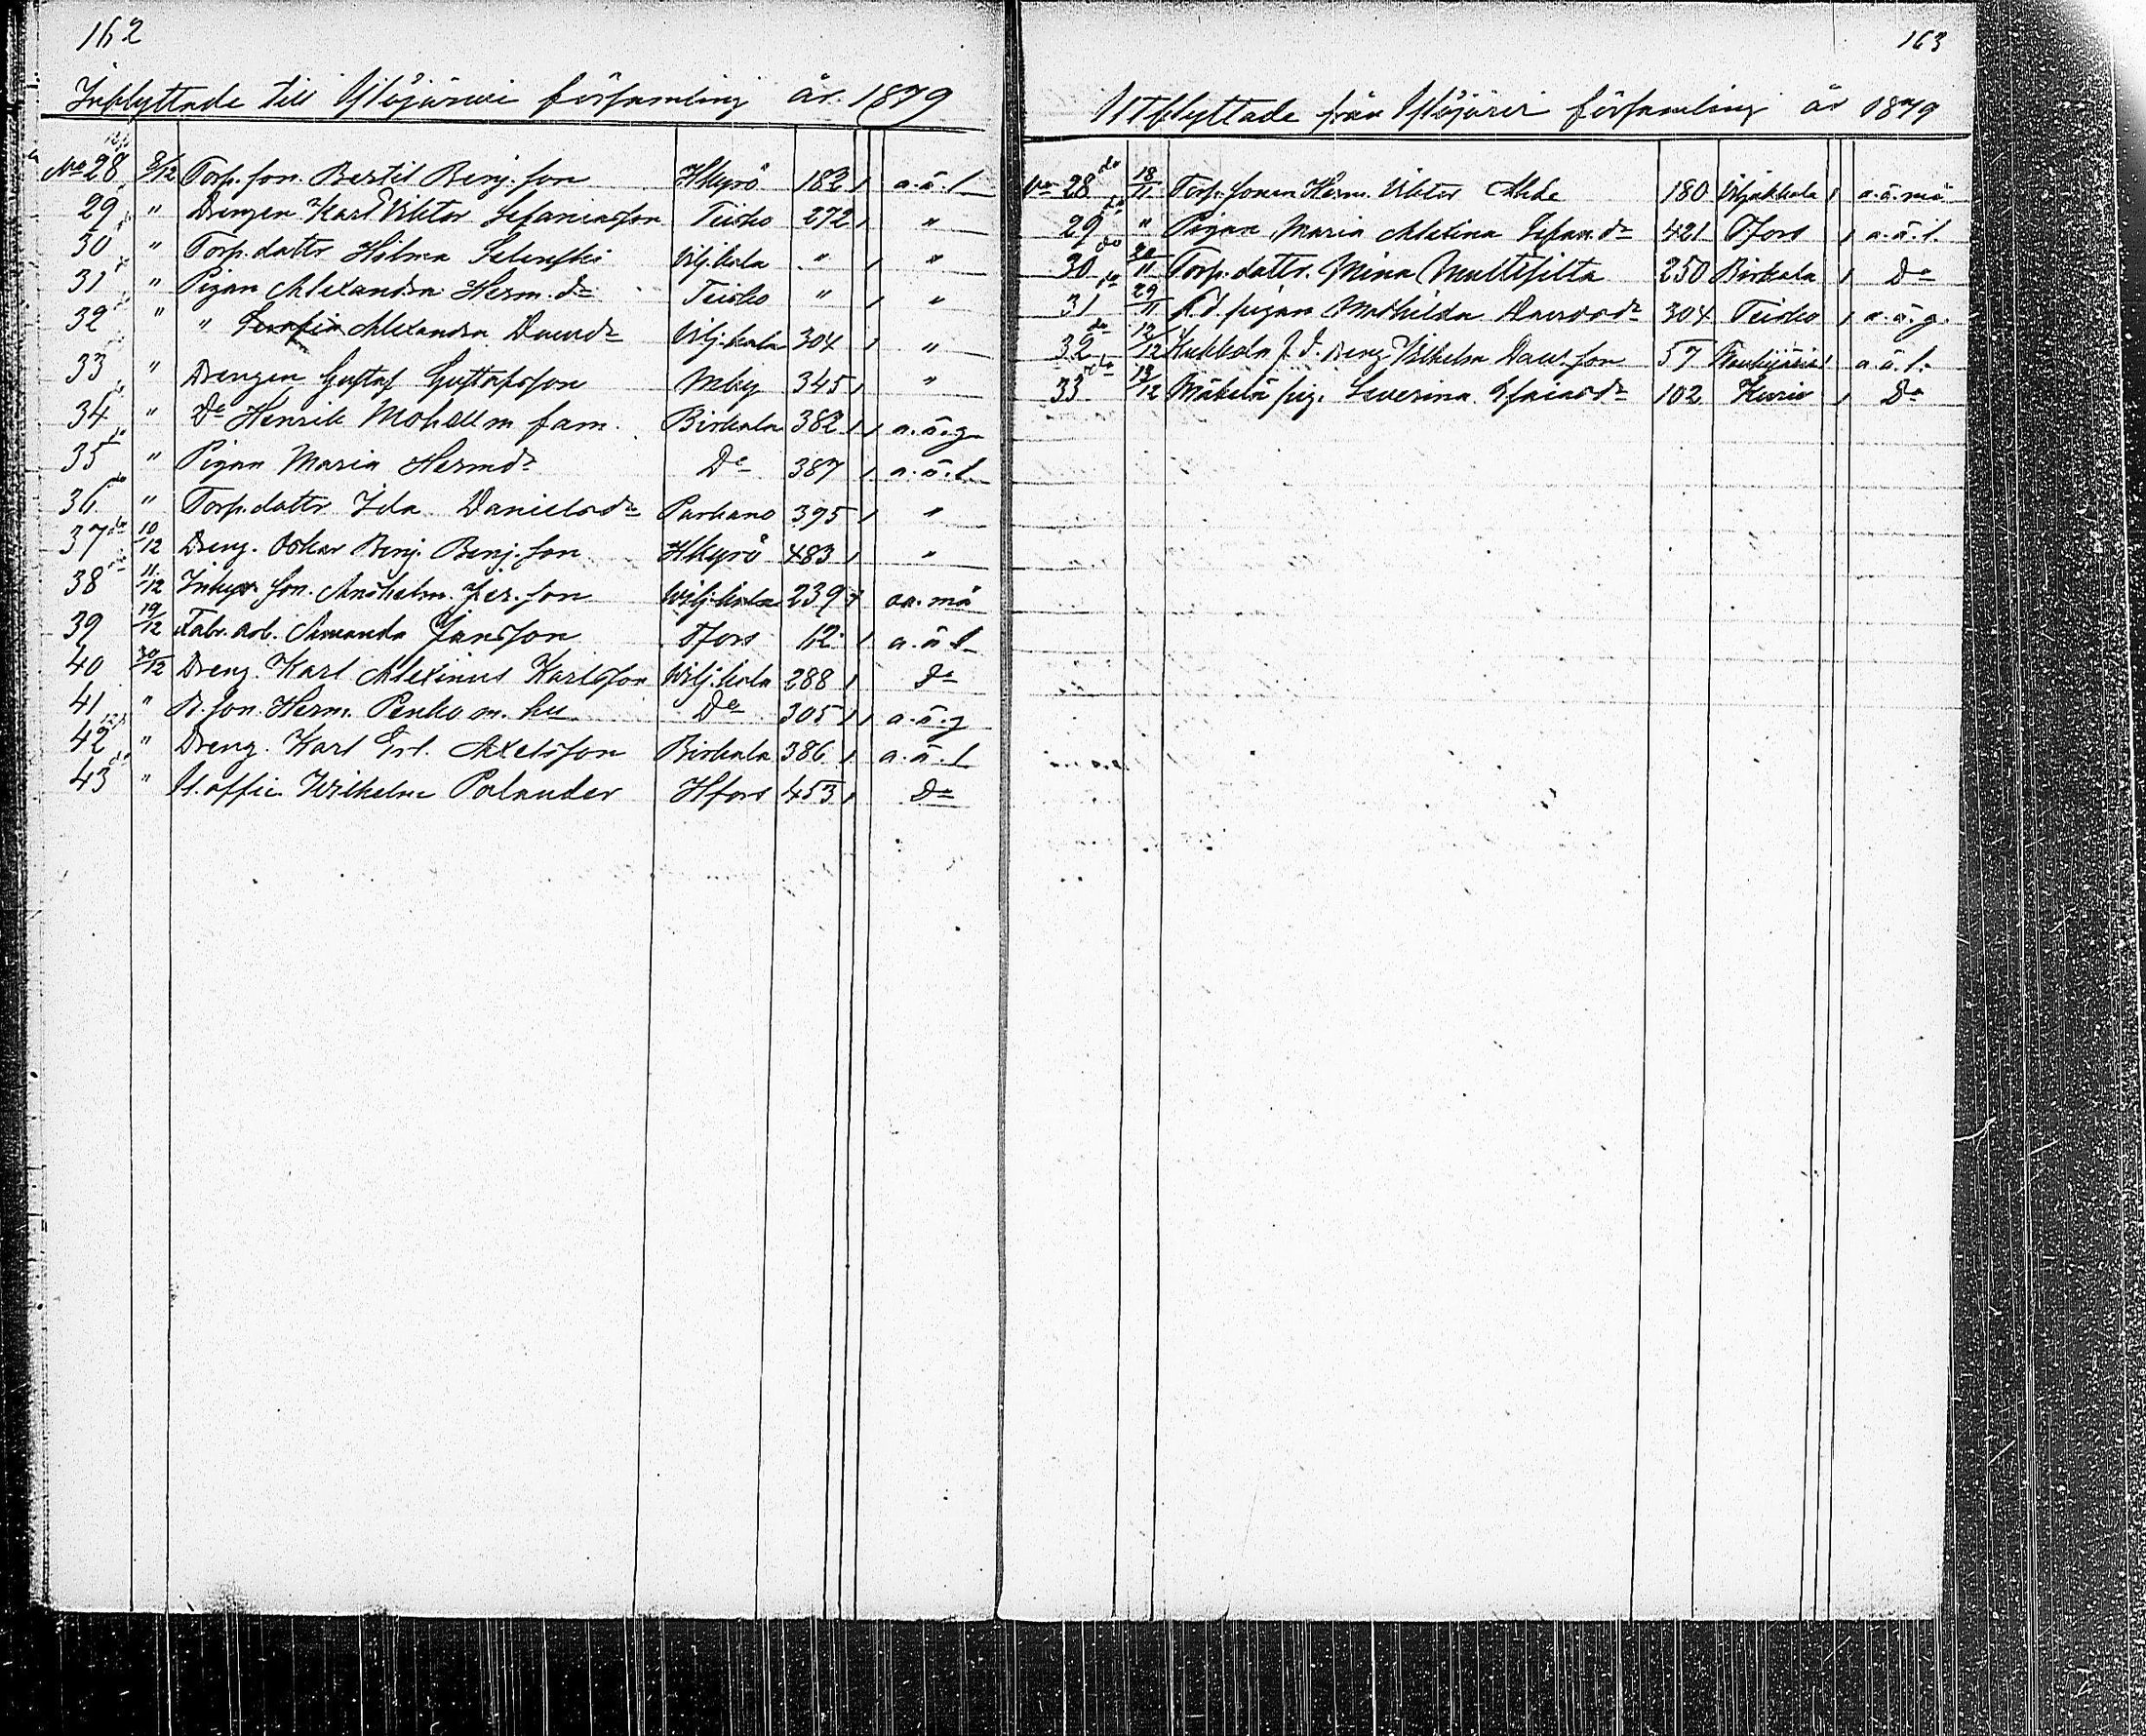 162
Inflyttade till Ylöjärvi församling år 1879
No 28 9/12 Torp. son Bertil Benj. son HKyrö 182 1 a.ä.l
29 " Drengen Karl Viktor Stefaniasson Teisko 272 1 "
30 " Torp. dottr Hilma Selenski Vilj.kala " 1 "
31 " Pigan Alexandra Herm. dr Teisko " 1 "
32 " " Serafia Alexandra Davidsdr Vilj.kala 304 1 "
33 " Drengen Gustaf Gustafsson Mby 345 1 "
34 " Do Henrik Mohell m fam. Birkala 382 1 1 a.ä.g
35 " Pigan Maria Hermdr Do 387 1 a.ä.l
36 " Torp. dottr Ida Danielsdr Parkano 395 1 "
37 do 10/12 Dreng. Oskar Benj. Benj. son HKyrö 483 1 "
38 11/12 Inhys. son. Ansholm. Jer. son Wilj.kala 239 1 aa. må
39 19/12 Fabr. arb. Amanda Jansson Tfors 12 1 a.ä.l
40 30/12 Dreng. Karl Alexius Karlsson Wilj.kala 288 1 Do
41 " B. son. Herm. Penko m. hu Do 305 1 1 a.ä.g
42 " Dreng. Karl Erl. Axelsson Birkala 386 1 a.ä.l
43 do " U. offic. Wilhelm Polander Hfors 453 1 Do
163
Utflyttade från Ylöjärvi församling år 1879
No 28 do 18/11 Torp. sonen Herm. Viktor Ahde 180 Viljakkala 1 a.ä.må
29 do " Pigan Maria Alexina Stefan.dr 421 Tfors 1 a.ä.l.
30 do 20/11 Torp. dottr. Mina Multisilta 250 Birkala 1 Do
31 do 29/11 f.d. pigan Mathilda Davidsdr 304 Teisko 1 a.ä.g.
32 do 12/12 Kukkola f.d. dreng Vilhelm Dav. son 57 1 a.ä.l.
33 do 13/12 Mäkelä pig. Severina Esaiasdr 102 Kuru 1 Do